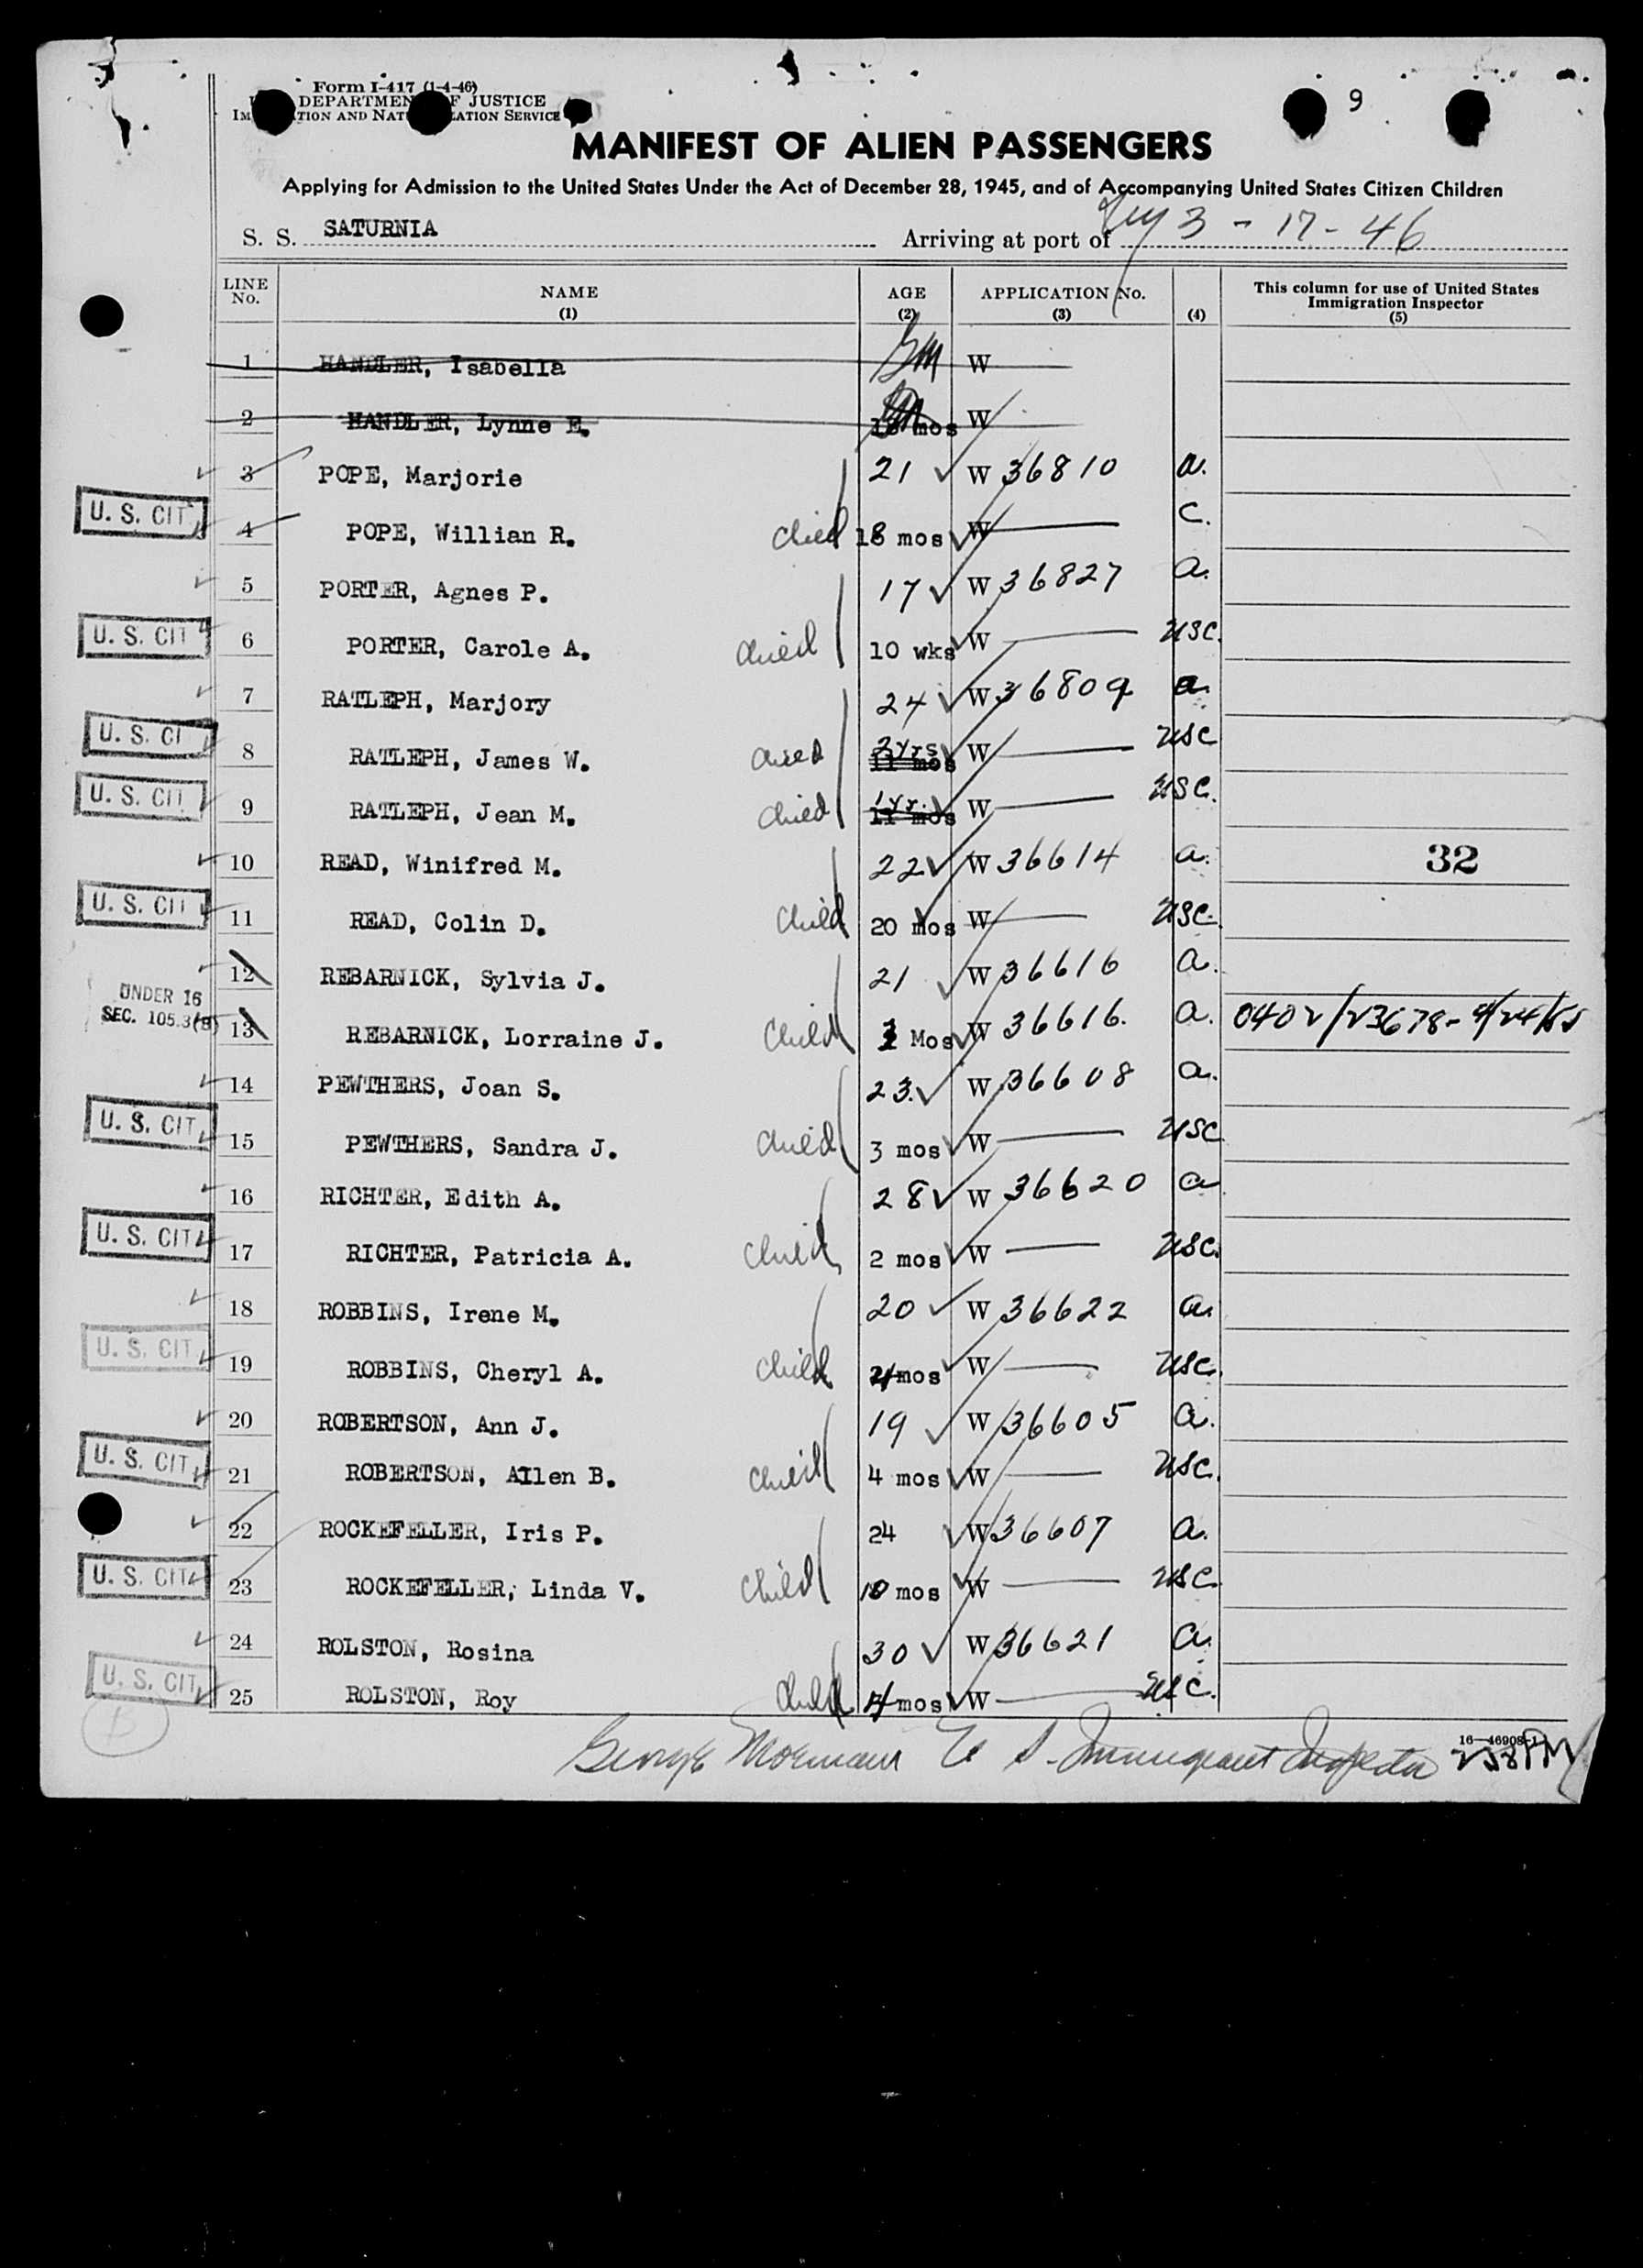 Form I-417 (1-4-46)
DEPARTMENT OF JUSTICE
IMMIGRATION AND NATURALIZATION SERVICE
9
MANIFEST OF ALIEN PASSENGERS
Applying for Admission to the United States Under the Act of December 28, 1945, and of Accompanying United States Citizen Children
S. S. SATURNIA Arriving at port of 3-17-46
LINE No. NAME (1) AGE (2) APPLICATION No. (3) (4) This column for use of United States Immigration Inspector (5)
1 HANDLER, Isabella W
2 HANDLER, Lynne E. mos W
3 POPE, Marjorie 21 W 36810 a.
U. S. CIT 4 POPE, Willian R. child 18 mos W C.
5 PORTER, Agnes P. 17 W 36827 a.
U. S. CIT 6 PORTER, Carole A. child 10 wks W USC.
7 RATLEPH, Marjory 24 W 36809 a.
U. S. CI 8 RATLEPH, James W. child 2yrs 11 mos W USC
U. S. CIT 9 RATLEPH, Jean M. child 1yr. 11 mos W USC.
10 READ, Winifred M. 22 W 36614 a. 32
U. S. CIT 11 READ, Colin D. child 20 mos W USC.
12 REBARNICK, Sylvia J. 21 W 36616 a.
UNDER 16
SEC. 105.3(B) 13 REBARNICK, Lorraine J. child Mos W 36616. a. 0402/23678-
14 PEWTHERS, Joan S. 23. W 36608 a.
U. S. CIT 15 PEWTHERS, Sandra J. child 3 mos W USC
16 RICHTER, Edith A. 28 W 36620 a
U. S. CIT 17 RICHTER, Patricia A. child 2 mos W USC.
18 ROBBINS, Irene M. 20 W 36622 a.
U. S. CIT 19 ROBBINS, Cheryl A. child 4 mos W USC.
20 ROBERTSON, Ann J. 19 W 36605 a.
U. S. CIT 21 ROBERTSON, Allen B. child 4 mos W USC.
22 ROCKEFELLER, Iris P. 24 W 36607 a.
U. S. CIT 23 ROCKEFELLER, Linda V. child 10 mos W USC.
24 ROLSTON, Rosina 30 W 36621 a.
U. S. CIT 25 ROLSTON, Roy child mos W USC.
B
16—46908-1
George U S. Immigrant Inspector